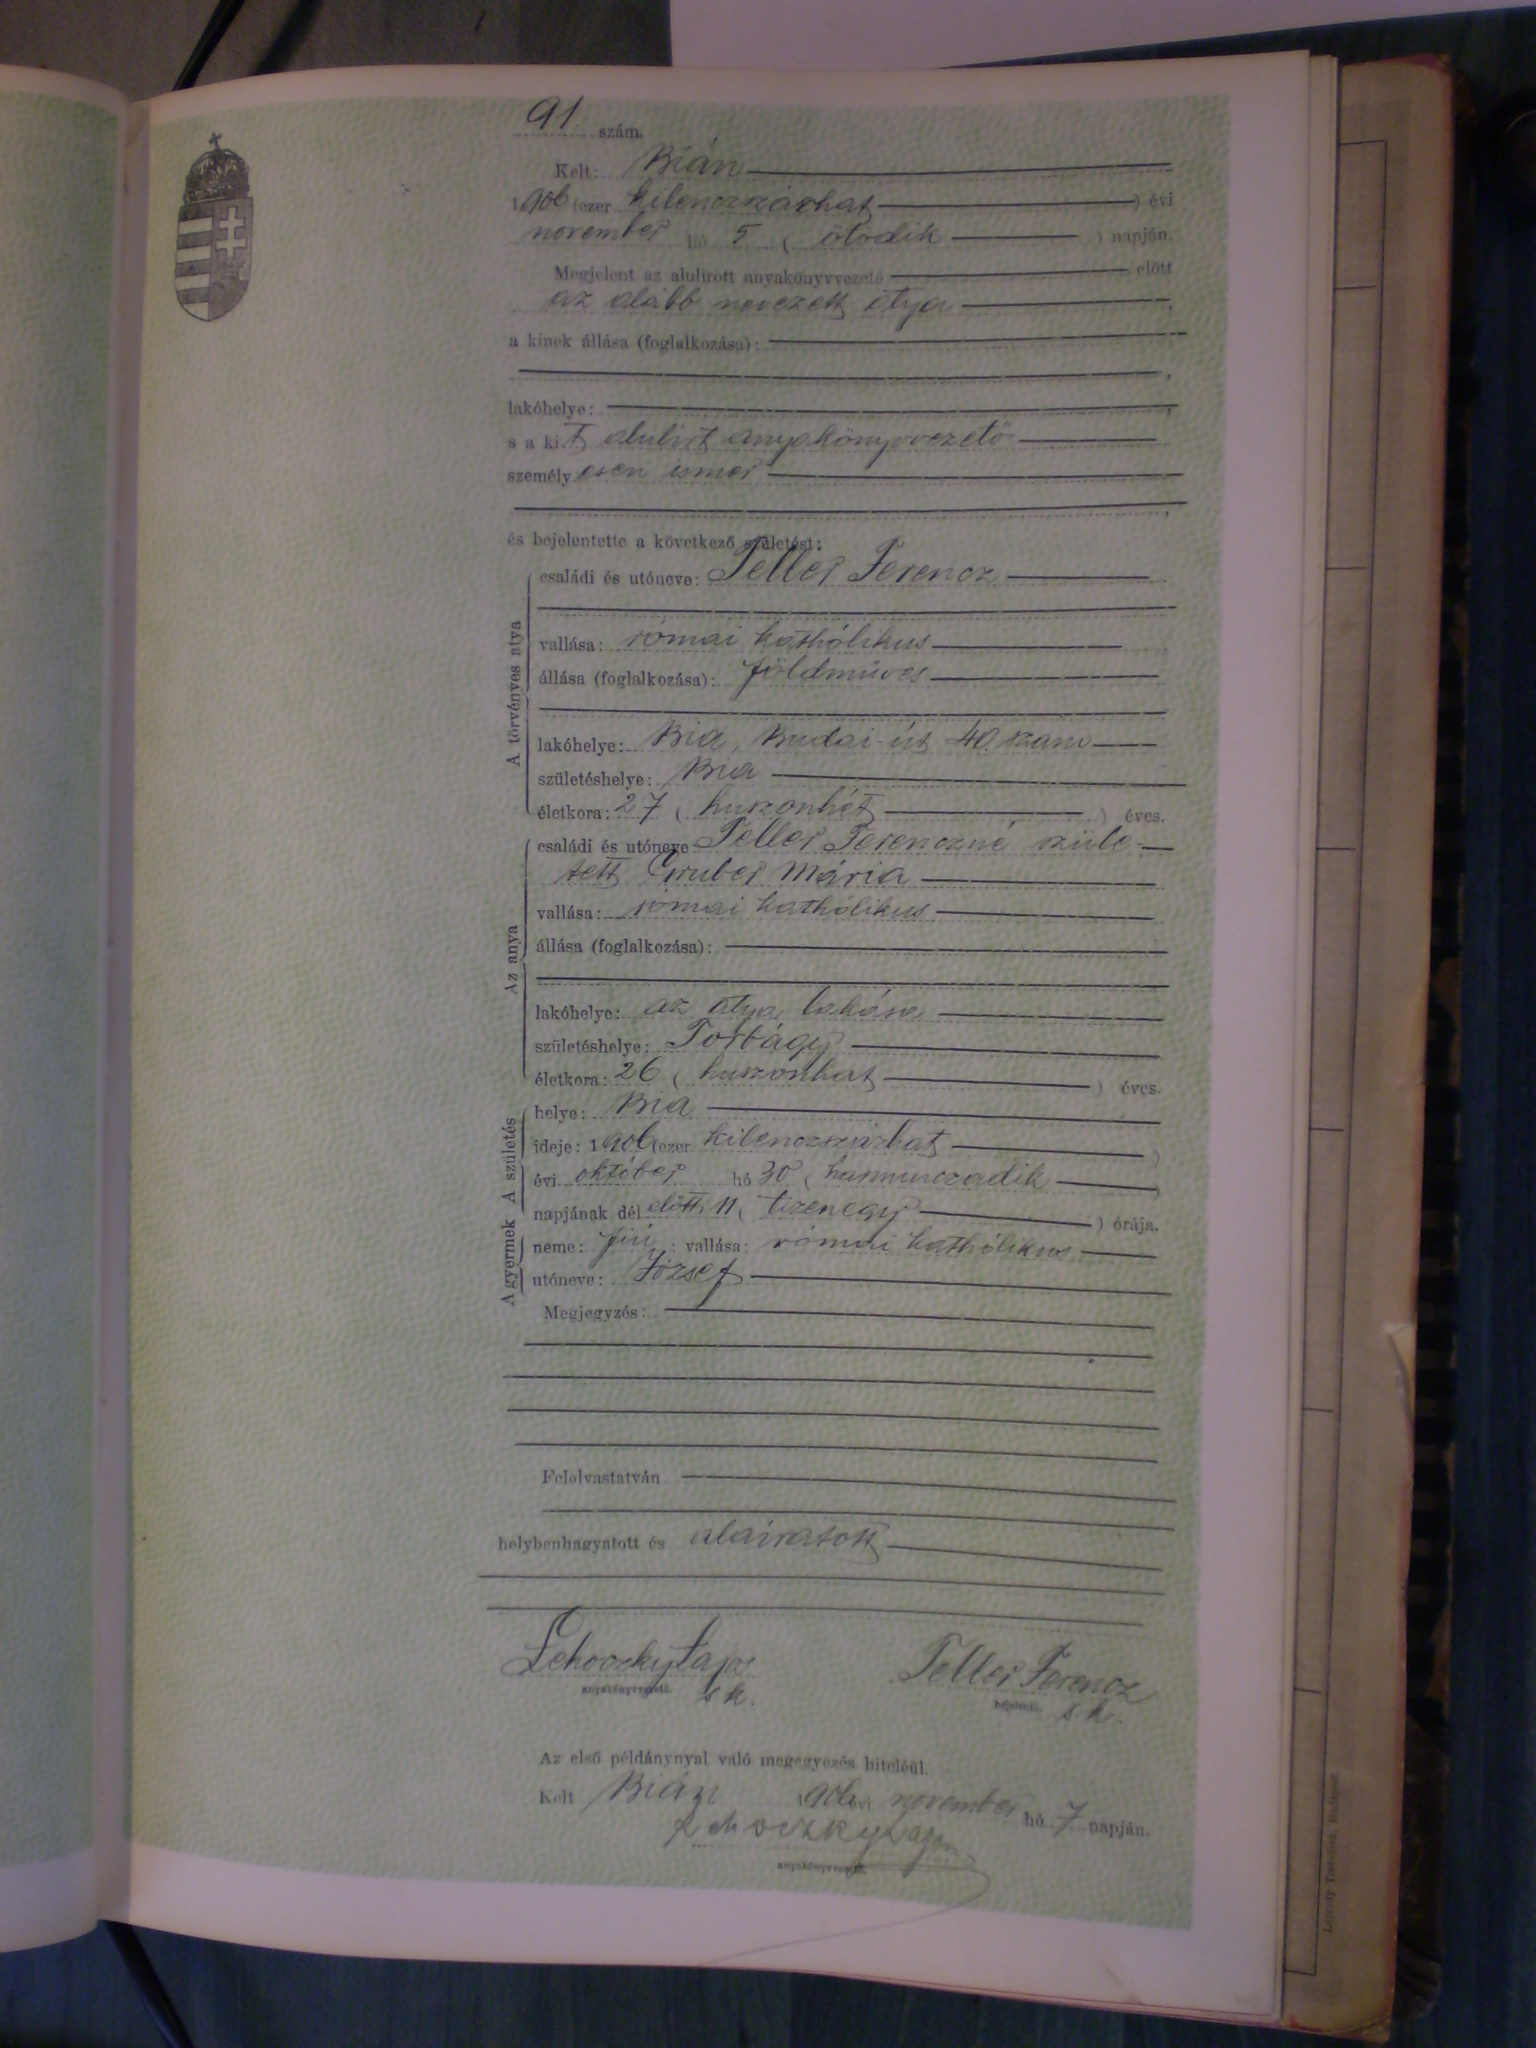 91 szám.
Kelt: Bián
1906 (ezer kilenczszázhat) évi
november hó 5 (ötödik) napján.
Megjelent az alulirott anyakönyvvezető előtt
az alább nevezett atya
a kinek állása (foglalkozása):
lakóhelye:
s a kit alulirt anyakönyvvezető
személyesen ismer
és bejelentette a következő születést:
A törvényes atya
családi és utóneve: Teller Ferencz
vallása: római kathólikus
állása (foglalkozása): földműves
lakóhelye: Bia, Budai út 40. szám
születéshelye: Bia
életkora: 27 (huszonhét) éves.
Az anya
családi és utóneve: Teller Ferenczné szüle-
tett Gruber Mária
vallása: római kathólikus
állása (foglalkozása):
lakóhelye: az atya lakása
születéshelye: Torbágy
életkora: 26 (huszonhat) éves.
A születés
helye: Bia
ideje: 1906 (ezer kilenczszázhat)
évi október hó 30 (harminczadik)
napjának dél előtt 11 (tizenegy) órája.
A gyermek
neme: fiú; vallása: római kathólikus
utóneve: József
Megjegyzés:
Felolvastatván
helybenhagyatott és aláiratott
Lehoczky Lajos s. k. Teller Ferencz s. k.
anyakönyvvezető. bejelentő.
Az első példánynyal való megegyezés hiteléül.
Kelt Bián 1906 évi november hó 7 napján.
Lehoczky Lajos
anyakönyvvezető.
Légrády Testvérek, Budapest